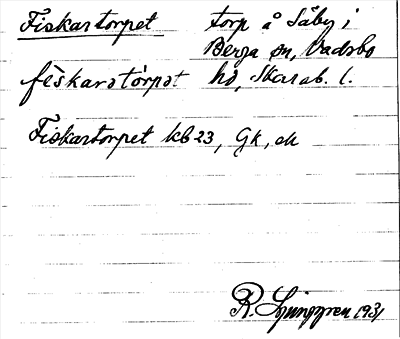 Fiskartorpet torp å Säby i
Berga sn, Vadsbo
fiskarstorpət hd, Skarab. l.
Fiskartorpet kb 23, GK, ek
R. Ljunggren 1931